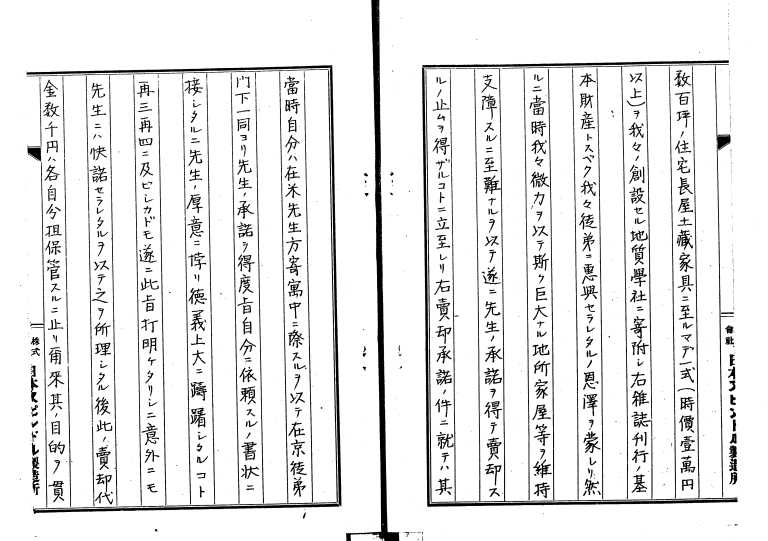 数百坪ノ住宅長屋土藏家具ニ至ルマデ一式(時價壹萬円
以上)ヲ我々ノ創設セル地質學社ニ寄附シ右雜誌刊行ノ基
本財産トスベク我々徒弟ニ惠與セラレタルノ恩澤ヲ蒙レリ然
ルニ當時我々微力ヲ以テ斯ク巨大ナル地所家屋等ヲ維持
支障スルニ至難ナルヲ以テ遂ニ先生ノ承諾ヲ得テ賣却ス
ルノ止ムヲ得ザルコトニ立至レリ右賣却承諾ノ件ニ就テハ其
當時自分ハ在米先生方寄寓中ニ際スルヲ以テ在京徒弟
門下一同ヨリ先生ノ承諾ヲ得度旨自分ニ依頼スルノ書状ニ
接シタルニ先生ノ厚意ニ悖リ德義上大ニ躊躇シタルコト
再三再四ニ及ビシカドモ遂ニ此旨打明ケタリシニ意外ニモ
先生ニハ快諾セラレタルヲ以テ之ヲ所理シタル後此ノ賣却代
金数千円ハ各自分担保管スルニ止リ爾來其ノ目的ヲ貫
株式
日本スピンドル製造所